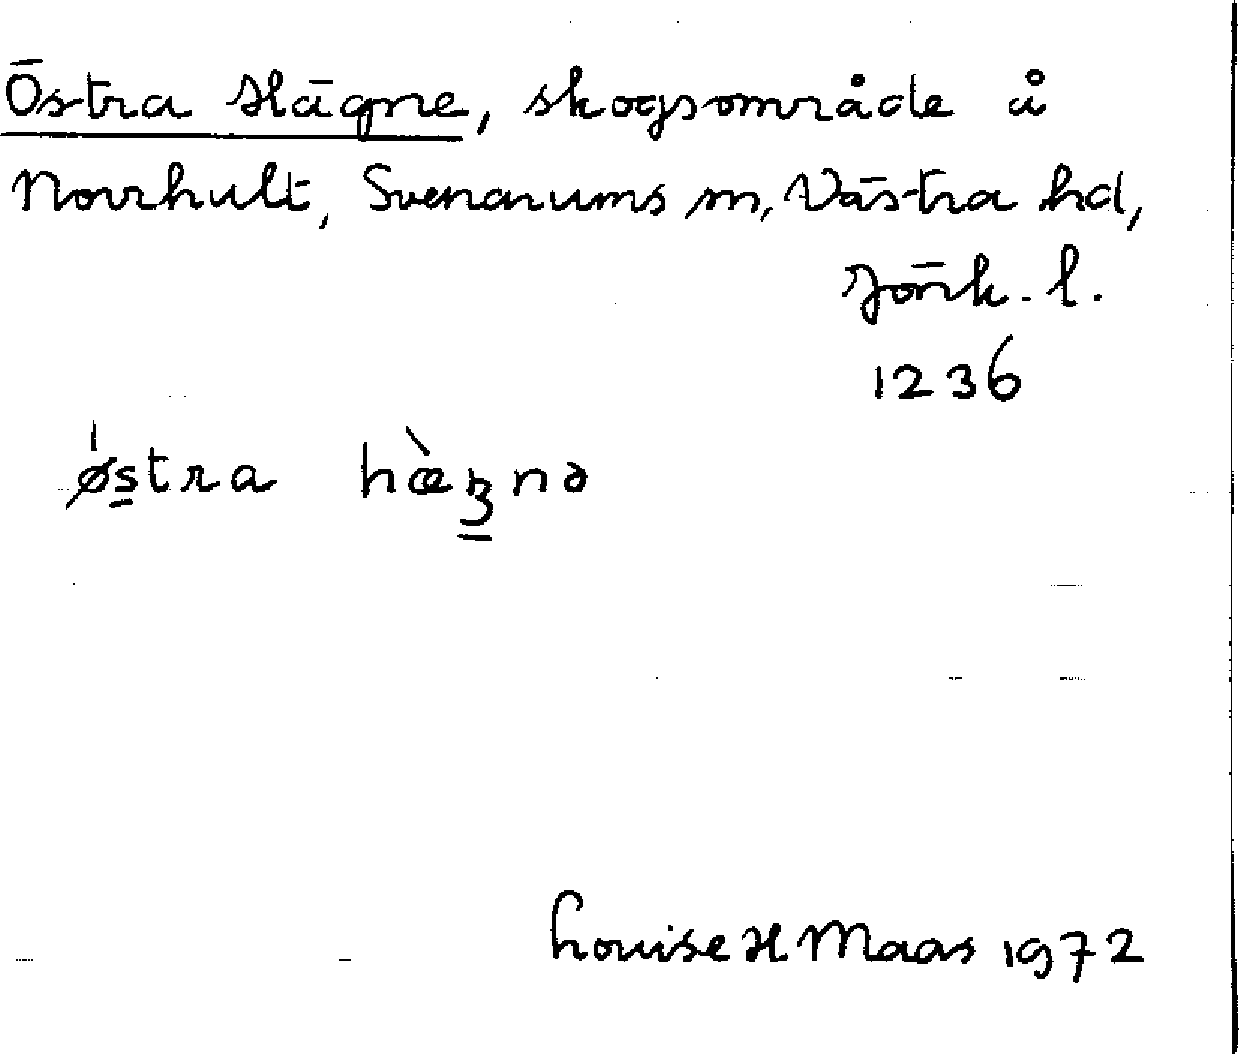 Östra Hägne, skogsområde å
Norrhult, Svenarums sn, Västra hd,
Jönk. l.
1236
ǿstra hæ̀ʒnə
Louise H Maas 1972